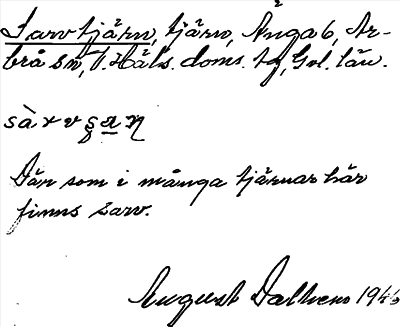 Sarvtjärn, tjärn, Änga 6, Ar-
brå sn, V. Häls. doms. tg, Gvl. län.
sàrvʂan
Där som i många tjärnar här
finns sarv.
August Dalhem 194